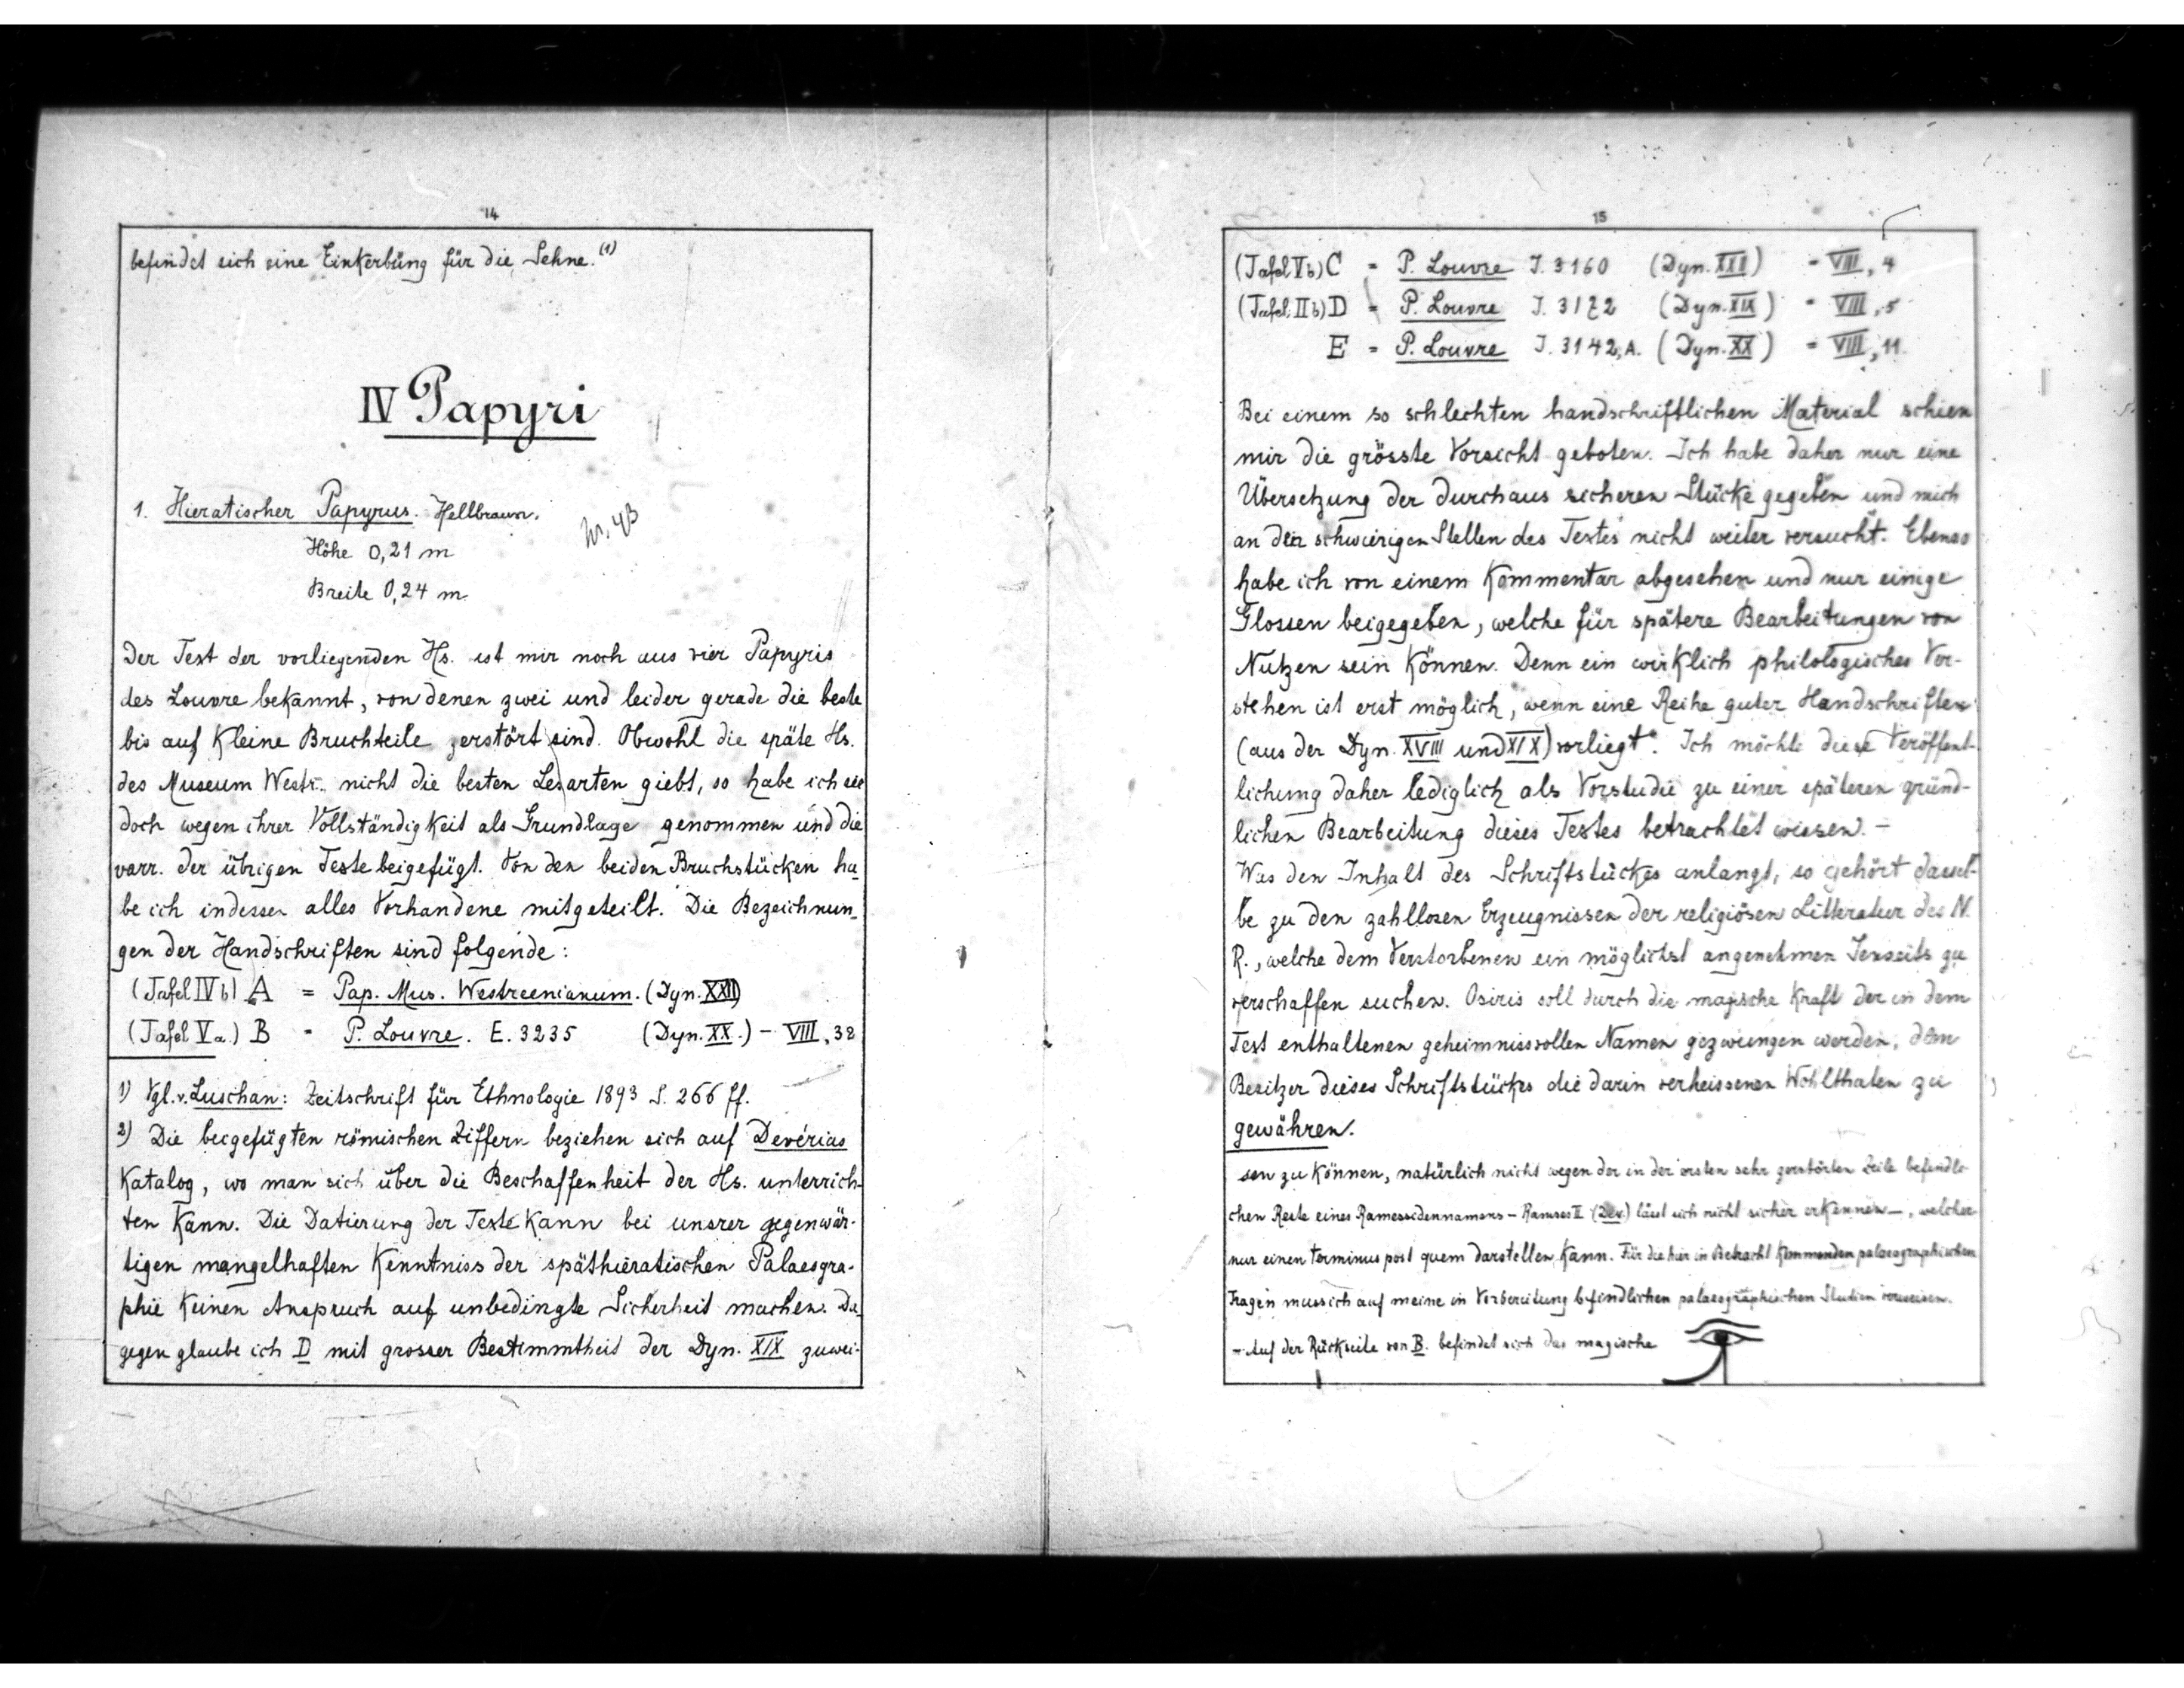 14
befindet sich eine Einkerbung für die Sehne.(1)
IV Papyri
1. Hieratischer Papyrus. Hellbraun.
Höhe 0,21 m
Breite 0,24 m
Der Text der vorliegenden Hs. ist mir noch aus vier Papyris
des Louvre bekannt, von denen zwei und leider gerade die beste
bis auf kleine Bruchteile zerstört sind. Obwohl die späte Hs.
des Museum Westr. nicht die besten Lesarten giebt, so habe ich sie
doch wegen ihrer Vollständigkeit als Grundlage genommen und die
varr. der übrigen Texte beigefügt. Von den beiden Bruchstücken ha-
be ich indessen alles Vorhandene mitgeteilt. Die Bezeichnun-
gen der Handschriften sind folgende:
(Tafel IV b) A = Pap. Mus. Westreenianum. (Dyn. XXII)
(Tafel V a.) B = P. Louvre. E. 3235 (Dyn. XX.) - VIII, 32
1) Vgl. v. Luschan: Zeitschrift für Ethnologie 1893 S. 266 ff.
2) Die beigefügten römischen Ziffern beziehen sich auf Devérias
Katalog, wo man sich über die Beschaffenheit der Hs. unterrich-
ten kann. Die Datierung der Texte kann bei unsrer gegenwär-
tigen mangelhaften Kenntniss der späthieratischen Palaeogra-
phie keinen Anspruch auf unbedingte Sicherheit machen. Da-
gegen glaube ich D mit grosser Bestimmtheit der Dyn. XIX zuwei-
15
(Tafel V b) C = P. Louvre J. 3160 (Dyn. XXII) = VIII, 4
(Tafel II b) D = P. Louvre J. 3172 (Dyn. XIX) = VIII, 5
E = P. Louvre J. 3142, A. (Dyn. XX) = VIII, 11.
Bei einem so schlechten handschriftlichen Material schien
mir die grösste Vorsicht geboten. Ich habe daher nur eine
Übersetzung der durchaus sicheren Stücke gegeben und mich
an den schwierigen Stellen des Textes nicht weiter versucht. Ebenso
habe ich von einem Kommentar abgesehen und nur einige
Glossen beigegeben, welche für spätere Bearbeitungen von
Nutzen sein können. Denn ein wirklich philologisches Ver-
stehen ist erst möglich, wenn eine Reihe guter Handschriften
(aus der Dyn. XVIII und XIX) vorliegt. Ich möchte diese Veröffent-
lichung daher lediglich als Vorstudie zu einer späteren gründ-
lichen Bearbeitung dieses Textes betrachtet wissen. -
Was den Inhalt des Schriftstückes anlangt, so gehört dassel-
be zu den zahllosen Erzeugnissen der religiösen Litteratur des N.
R., welche dem Verstorbenen ein möglichst angenehmen Jenseits zu
verschaffen suchen. Osiris soll durch die magische Kraft der in dem
Text enthaltenen geheimnissvollen Namen gezwungen werden, dem
Besitzer dieses Schriftstückes die darin verheissenen Wohlthaten zu
gewähren.
sen zu können, natürlich nicht wegen der in der ersten sehr zerstörten Zeile befindli-
chen Reste eines Ramessidennamens - Ramses II (Dev.) lässt sich nicht sicher erkennen -, welcher
nur einen terminus post quem darstellen kann. Für die hier in Betracht kommenden palaeographischen
Fragen muss ich auf meine in Vorbereitung befindlichen palaeographischen Studien verweisen.
- Auf der Rückseite von B. befindet sich das magische